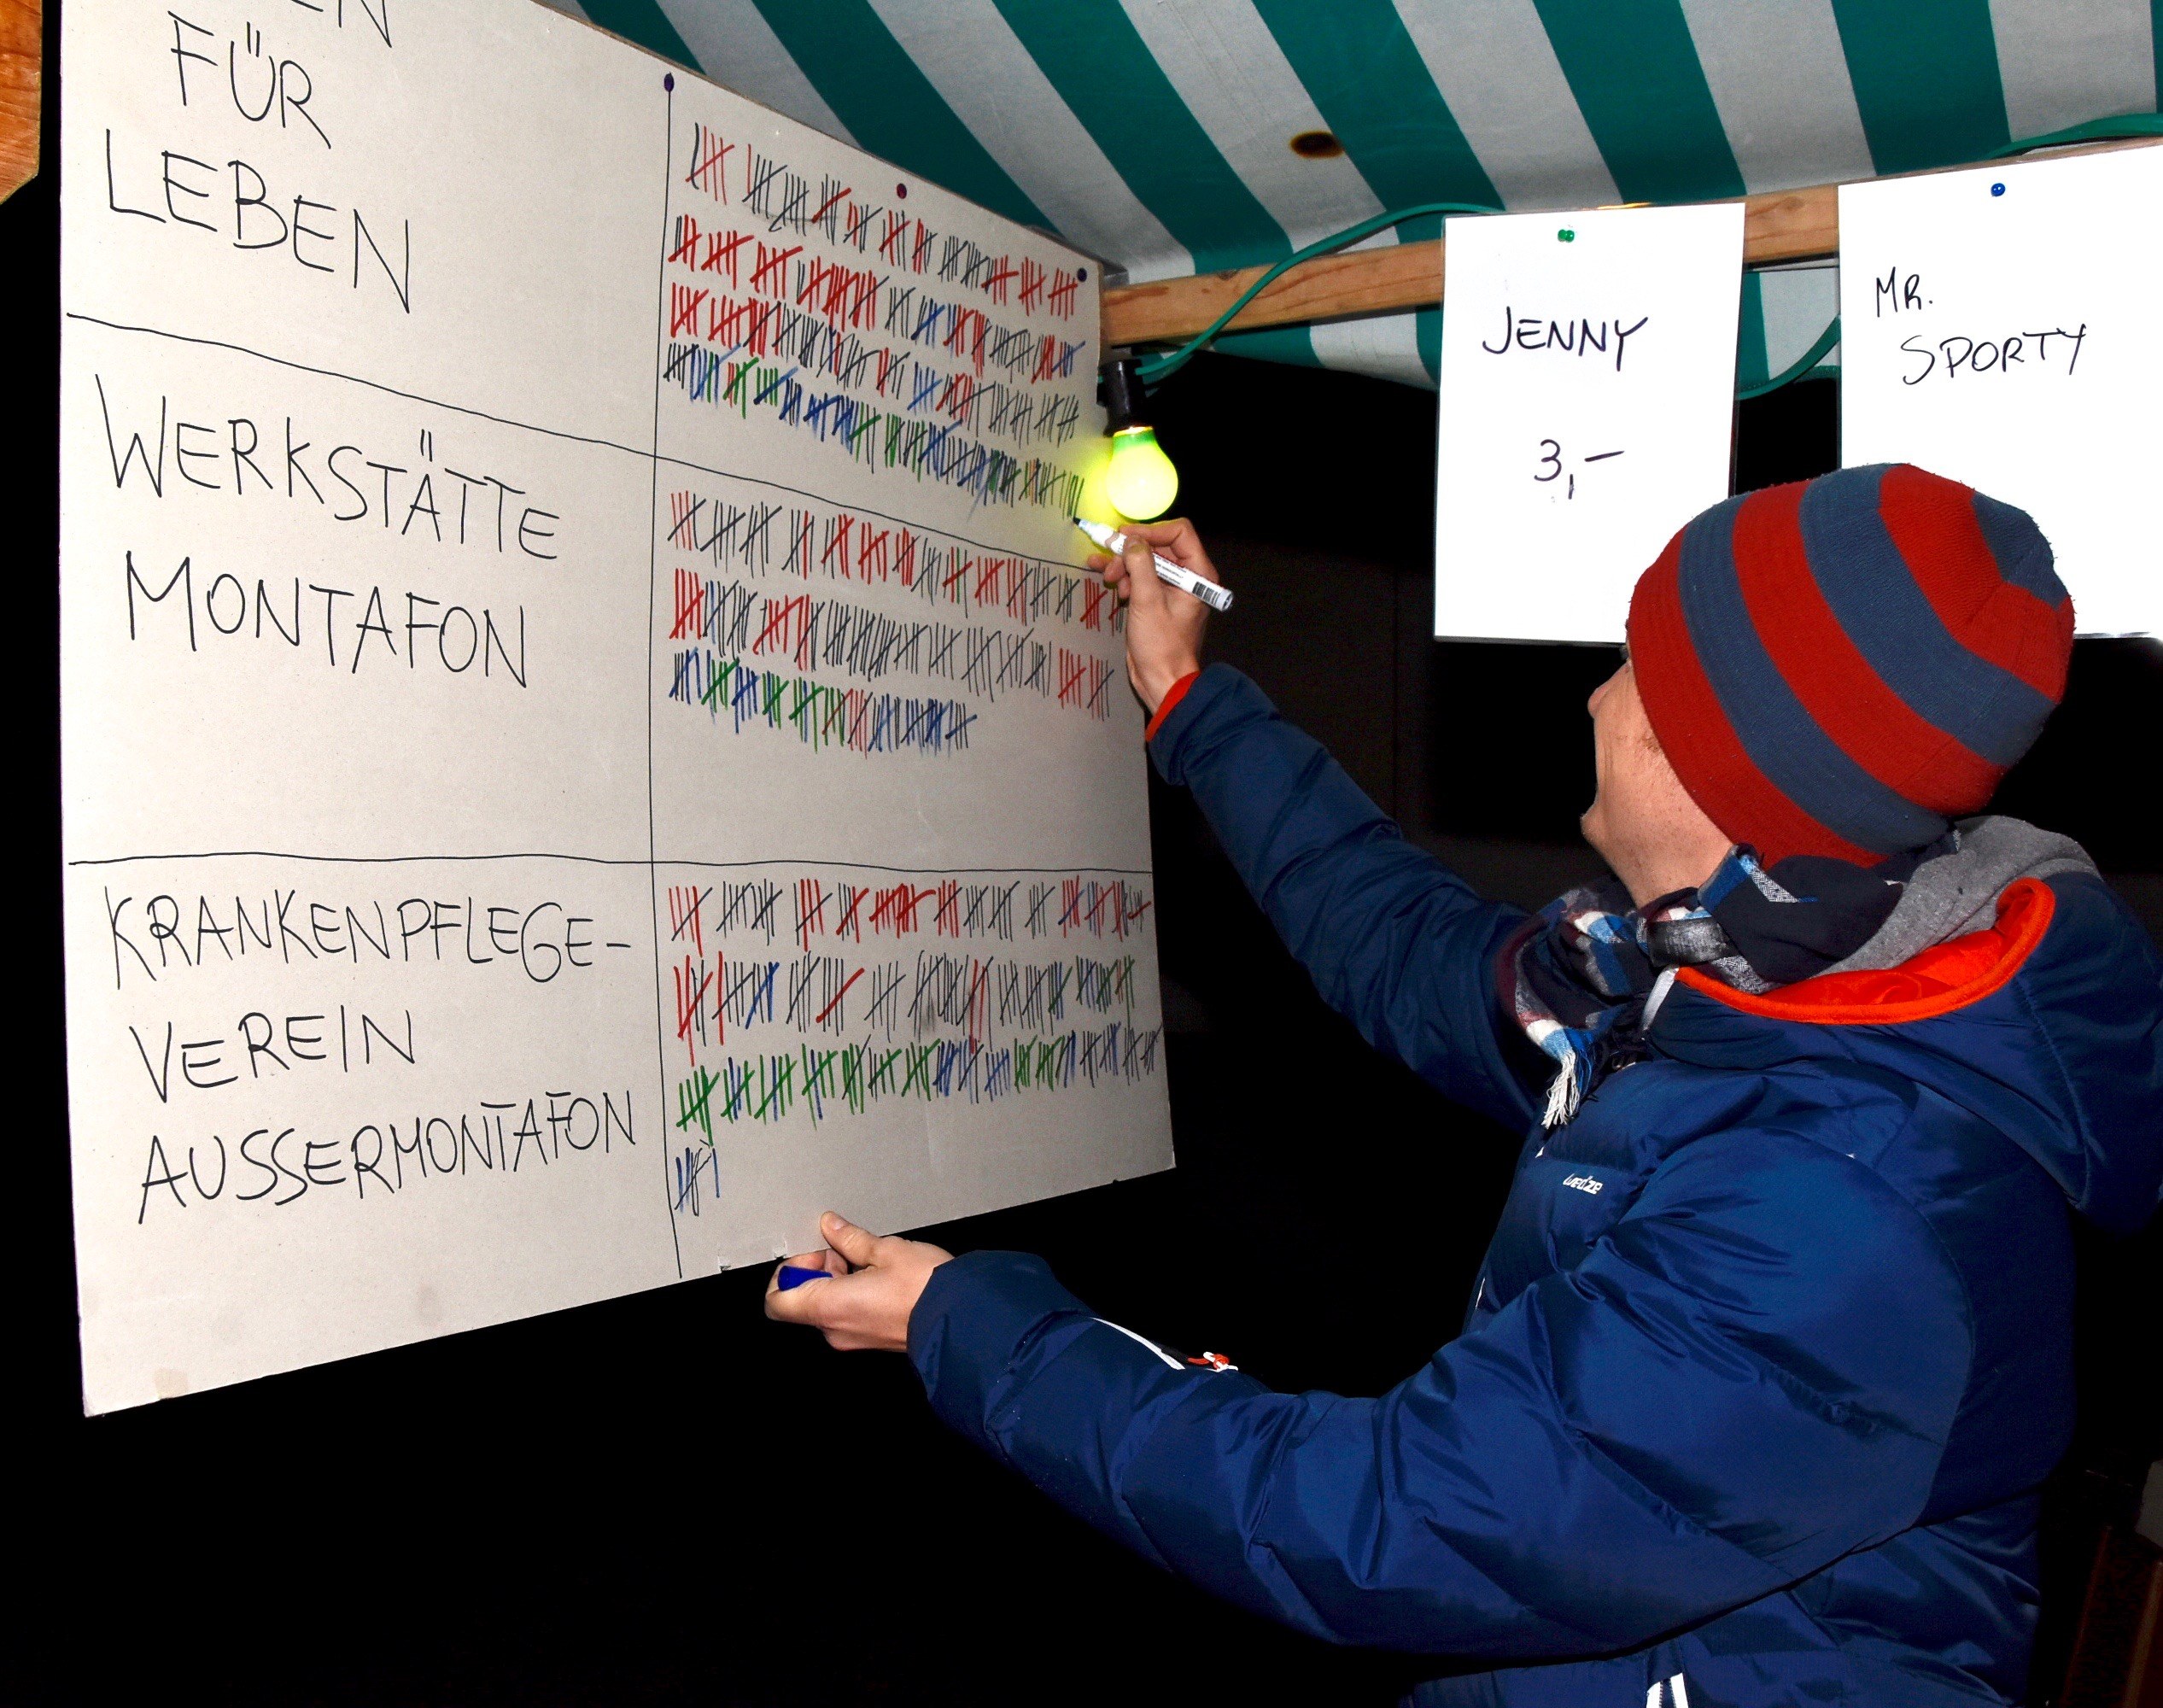 FÜR
LEBEN
WERKSTÄTTE
MONTAFON
KRANKENPFLEGE-
VEREIN
AUSSERMONTAFON
JENNY
3,-
MR.
SPORTY
wed'ze